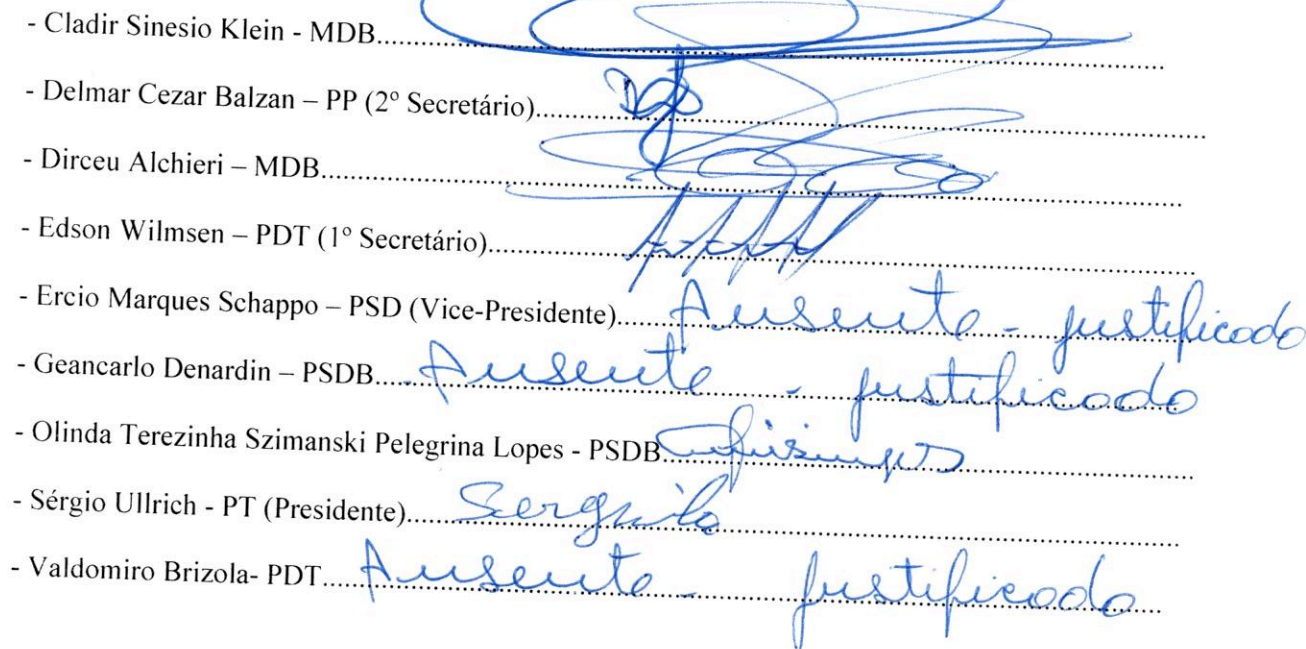 - Cladir Sinesio Klein - MDB
- Delmar Cezar Balzan – PP (2º Secretário)
- Dirceu Alchieri – MDB
- Edson Wilmsen – PDT (1º Secretário)
- Ercio Marques Schappo – PSD (Vice-Presidente) Ausente - justificado
- Geancarlo Denardin – PSDB Ausente - justificado
- Olinda Terezinha Szimanski Pelegrina Lopes - PSDB
- Sérgio Ullrich - PT (Presidente)
- Valdomiro Brizola- PDT Ausente - justificado